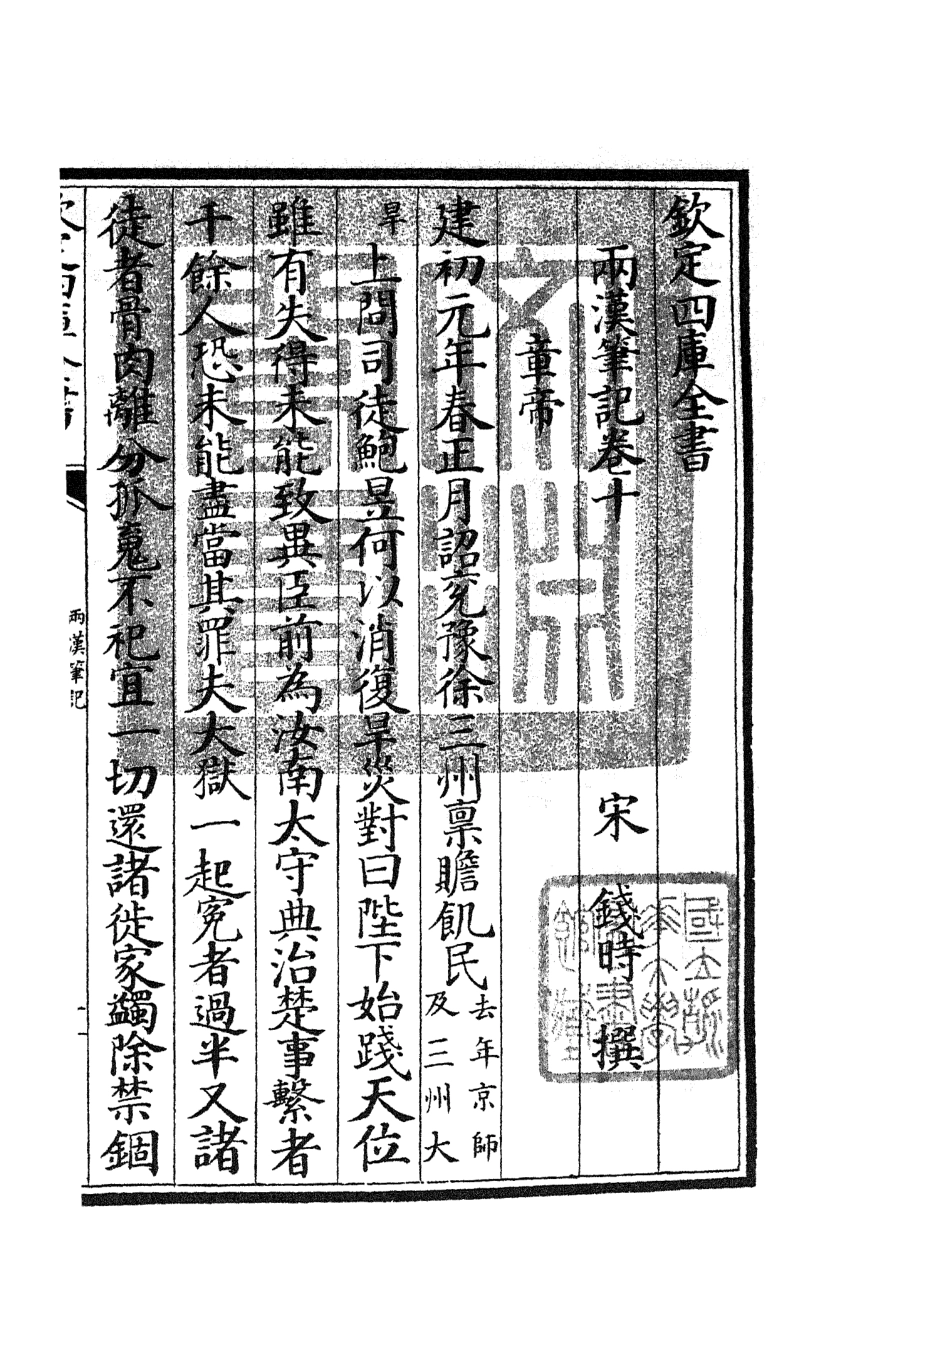 欽定四庫全書
兩漢筆記卷十
宋 錢時 撰
章帝
建初元年春正月詔兖豫徐三州禀贍飢民去年京師
及三州大
旱上問司徒鮑昱何以消復旱災對曰陛下始踐天位
雖有失得未能致異臣前為汝南太守典治楚事繫者
千餘人恐未能盡當其罪夫大獄一起寃者過半又諸
徙者骨肉離分孤魂不祀宜一切還諸徙家蠲除禁錮
兩漢筆記